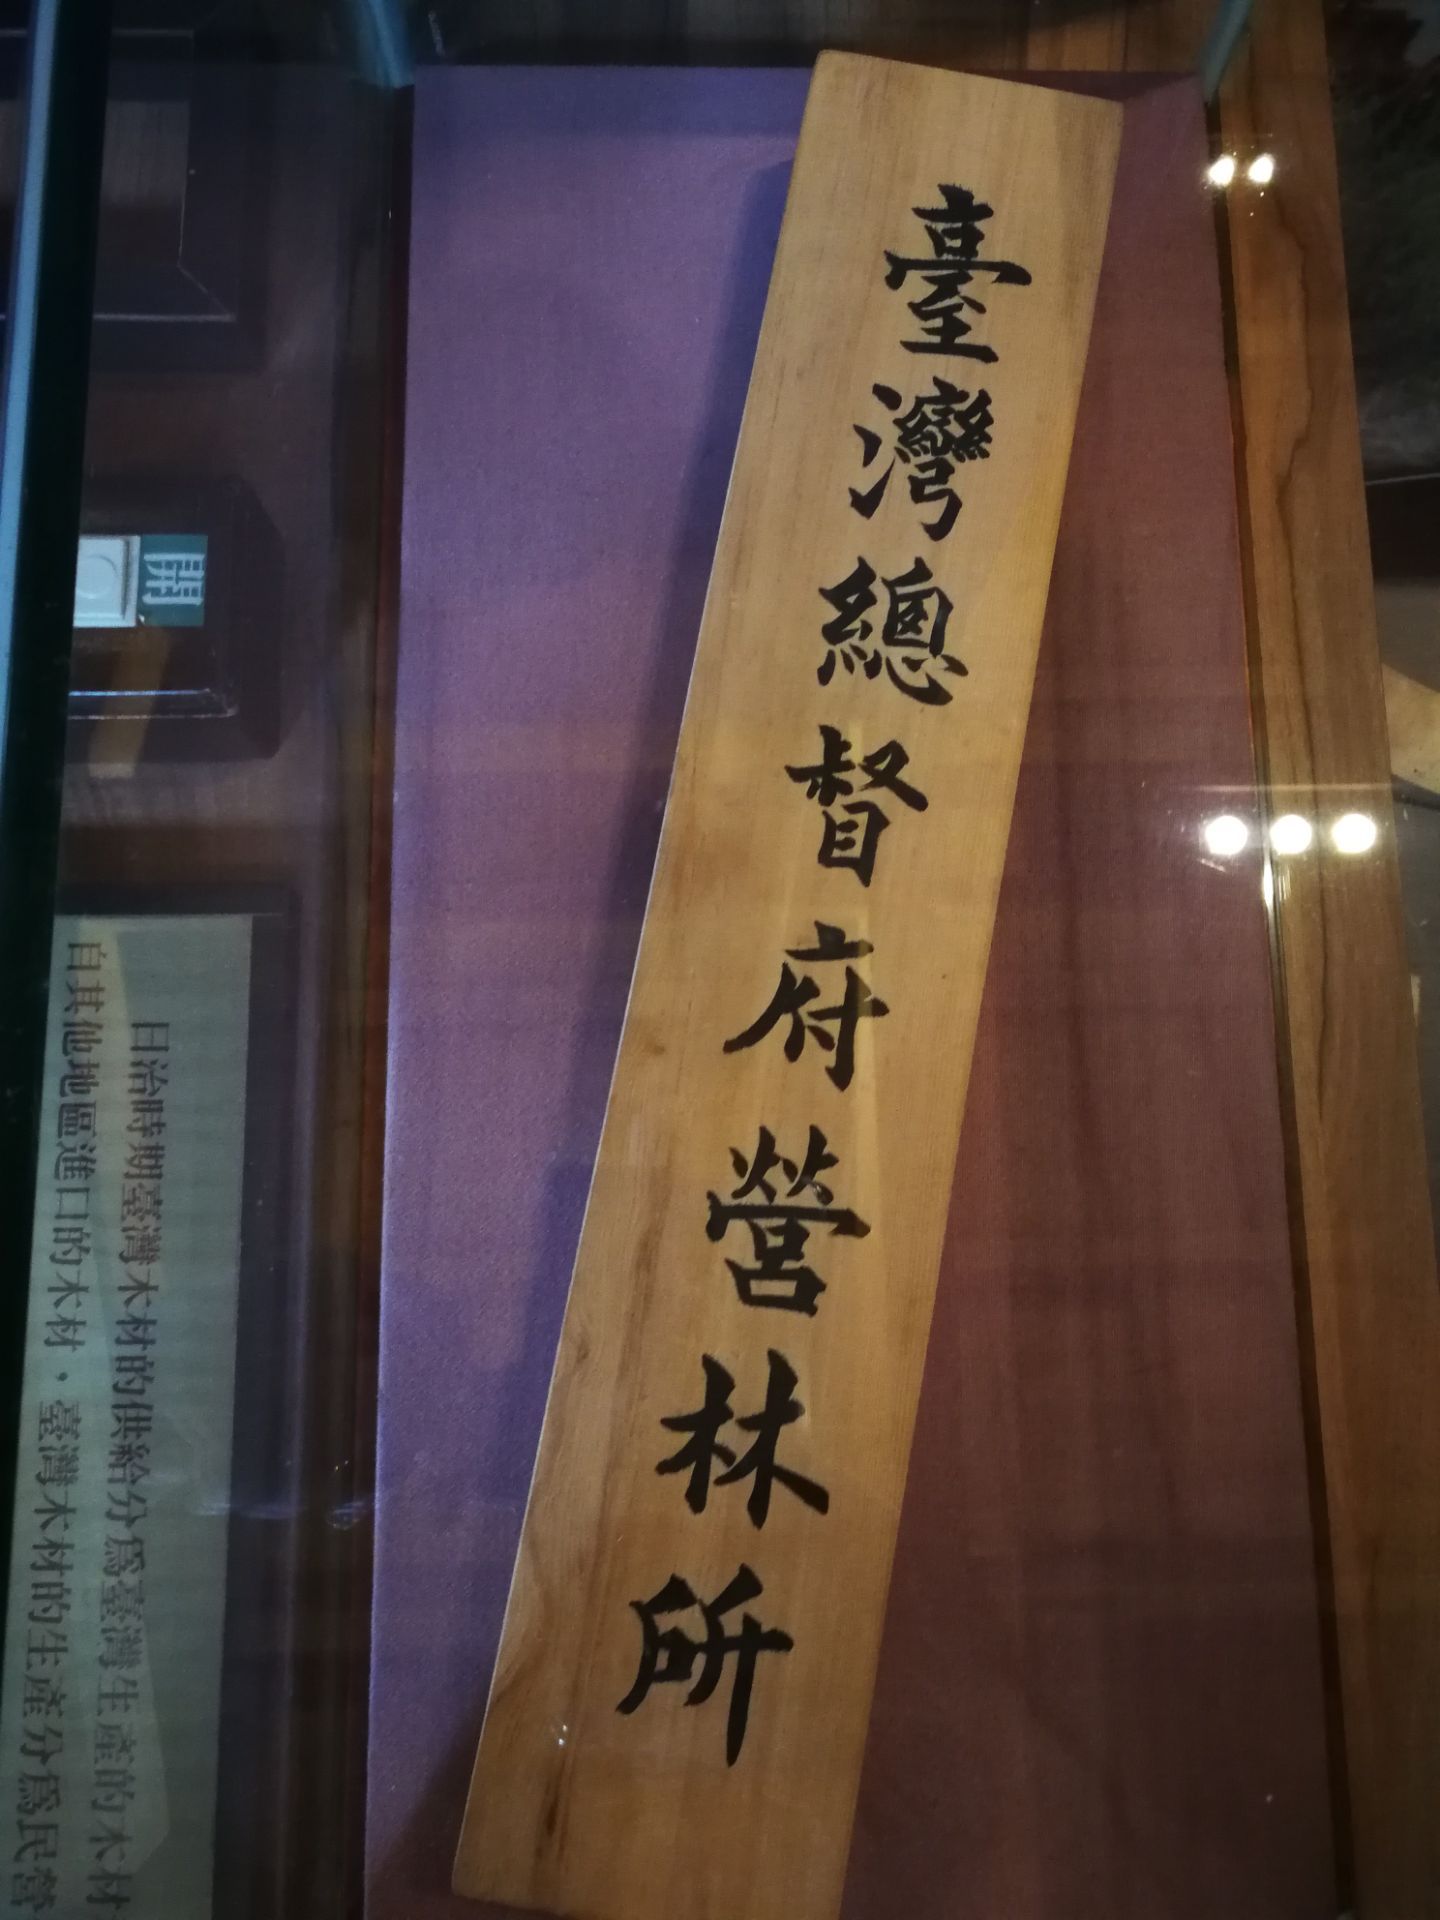 臺灣總督府營林所
開
日治時期臺灣木材的供給分為臺灣生產的木材
自其他地區進口的木材，臺灣木材的生產分為民營